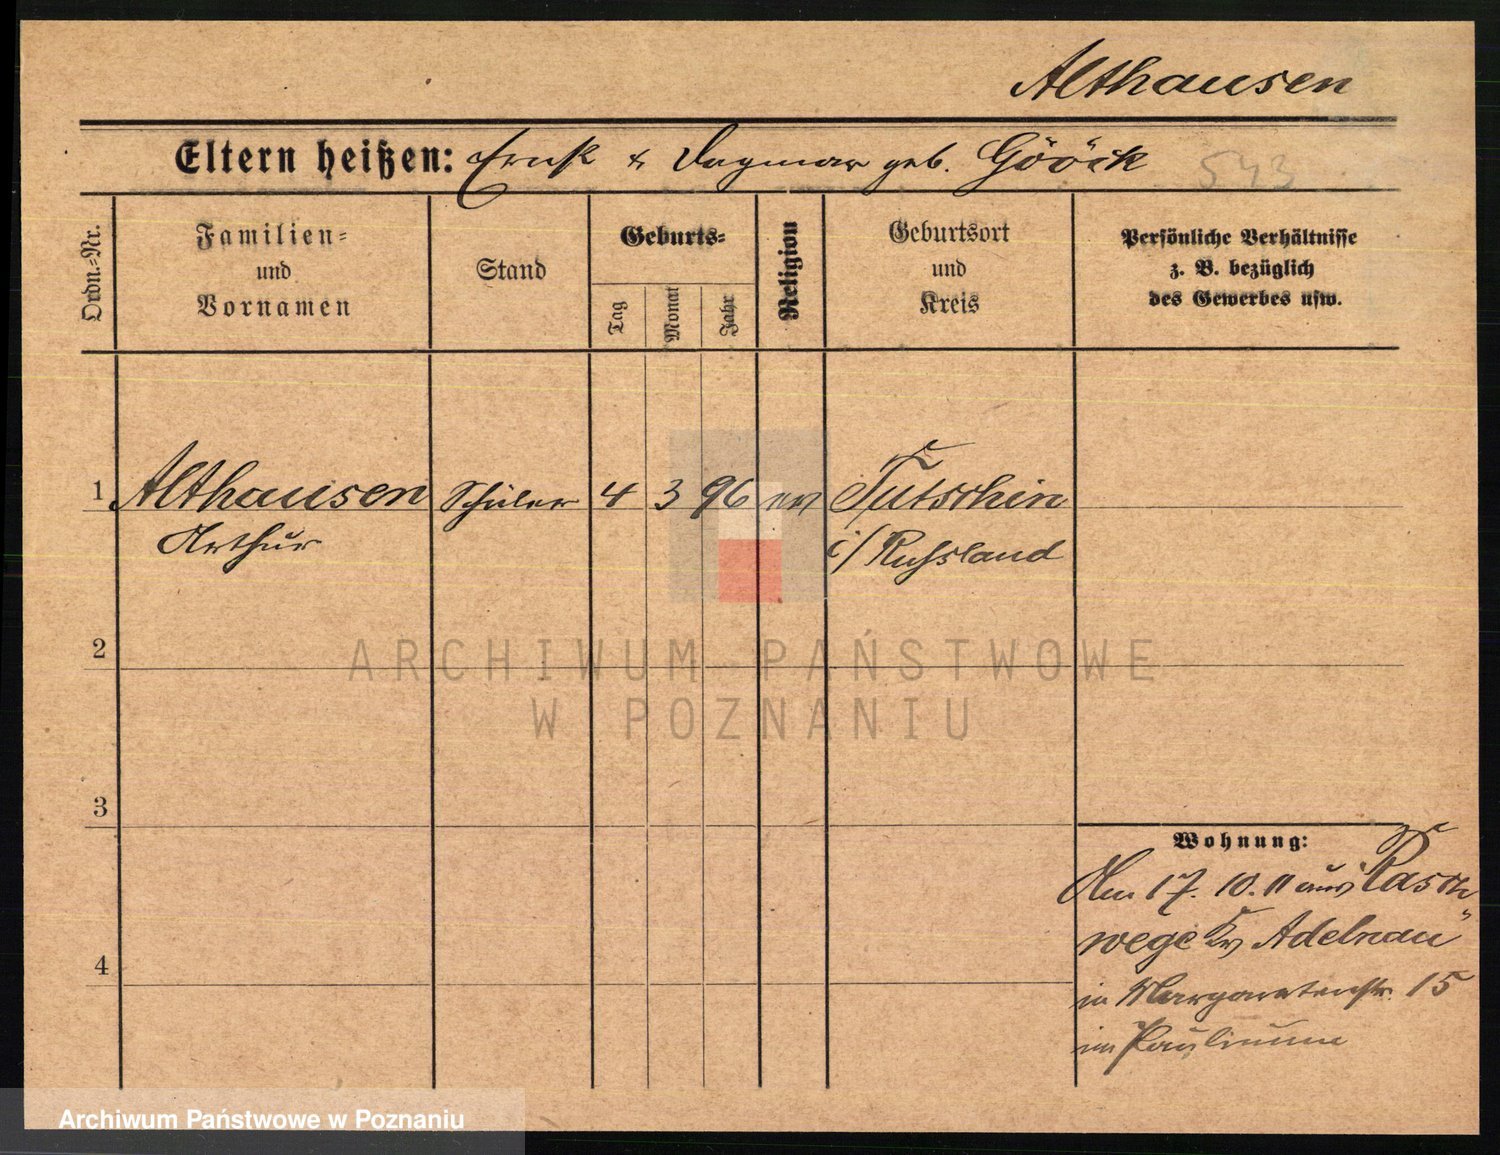 Althausen
Eltern heißen: Ernst & Dagmar geb. Gööck 543
Ordn.=Nr.
Familien=
und
Vornamen
Stand
Geburts=
Tag
Monat
Jahr
Religion
Geburtsort
und
Kreis
Persönliche Verhältnisse
z. B. bezüglich
des Gewerbes usw.
1 Althausen Schüler 4 3 96 ev Tutschin
Arthur i/ Russland
2
ARCHIWUM PAŃSTWOWE
W POZNANIU
3
Wohnung:
Am 17. 10. 11 aus Rasch
wege Kr Adelnau
4
in Margaretenstr. 15
im Paulinum
Archiwum Państwowe w Poznaniu